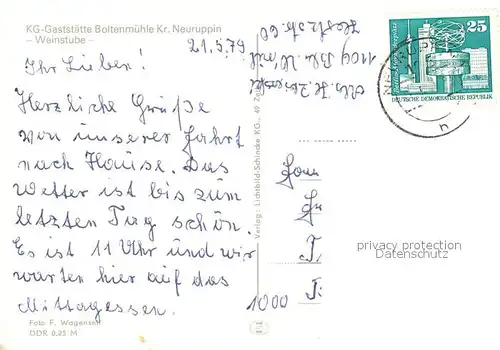 KG-Gaststätte Boltenmühle Kr. Neuruppin
– Weinstube –
21.5.79
Ihr Lieben!
Herzliche Grüße
von unserer Fahrt
nach Hause. Das
Wetter ist bis zum
letzten Tag schön.
Es ist 11 Uhr und wir
warten hier auf das
Mittagessen.
Foto: F. Wagenseil
DDR 0,25 M
Verlag: Lichtbild-Schincke KG.,
25
DEUTSCHE DEMOKRATISCHE REPUBLIK
Fam
1000
privacy protection
Datenschutz